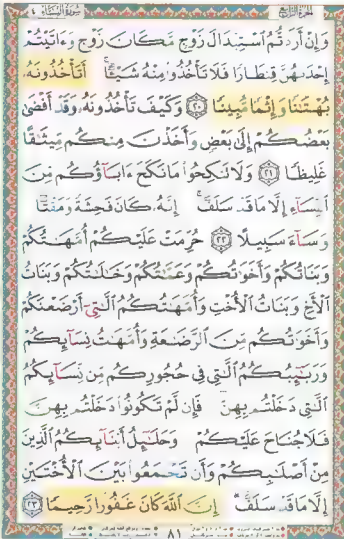 الجزء الرابع سورة النساء ٤
وَإِنْ أَرَدتُّمُ ٱسْتِبْدَالَ زَوْجٍ مَّكَانَ زَوْجٍ وَءَاتَيْتُمْ
إِحْدَىٰهُنَّ قِنطَارًا فَلَا تَأْخُذُوا۟ مِنْهُ شَيْـًٔا ۚ أَتَأْخُذُونَهُۥ
بُهْتَـٰنًا وَإِثْمًا مُّبِينًا ٢٠ وَكَيْفَ تَأْخُذُونَهُۥ وَقَدْ أَفْضَىٰ
بَعْضُكُمْ إِلَىٰ بَعْضٍ وَأَخَذْنَ مِنكُم مِّيثَـٰقًا
غَلِيظًا ٢١ وَلَا تَنكِحُوا۟ مَا نَكَحَ ءَابَآؤُكُم مِّنَ
ٱلنِّسَآءِ إِلَّا مَا قَدْ سَلَفَ ۚ إِنَّهُۥ كَانَ فَـٰحِشَةً وَمَقْتًا
وَسَآءَ سَبِيلًا ٢٢ حُرِّمَتْ عَلَيْكُمْ أُمَّهَـٰتُكُمْ
وَبَنَاتُكُمْ وَأَخَوَٰتُكُمْ وَعَمَّـٰتُكُمْ وَخَـٰلَـٰتُكُمْ وَبَنَاتُ
ٱلْأَخِ وَبَنَاتُ ٱلْأُخْتِ وَأُمَّهَـٰتُكُمُ ٱلَّـٰتِىٓ أَرْضَعْنَكُمْ
وَأَخَوَٰتُكُم مِّنَ ٱلرَّضَـٰعَةِ وَأُمَّهَـٰتُ نِسَآئِكُمْ
وَرَبَـٰٓئِبُكُمُ ٱلَّـٰتِى فِى حُجُورِكُم مِّن نِّسَآئِكُمُ
ٱلَّـٰتِى دَخَلْتُم بِهِنَّ فَإِن لَّمْ تَكُونُوا۟ دَخَلْتُم بِهِنَّ
فَلَا جُنَاحَ عَلَيْكُمْ وَحَلَـٰٓئِلُ أَبْنَآئِكُمُ ٱلَّذِينَ
مِنْ أَصْلَـٰبِكُمْ وَأَن تَجْمَعُوا۟ بَيْنَ ٱلْأُخْتَيْنِ
إِلَّا مَا قَدْ سَلَفَ ۗ إِنَّ ٱللَّهَ كَانَ غَفُورًا رَّحِيمًا ٢٣
٨١